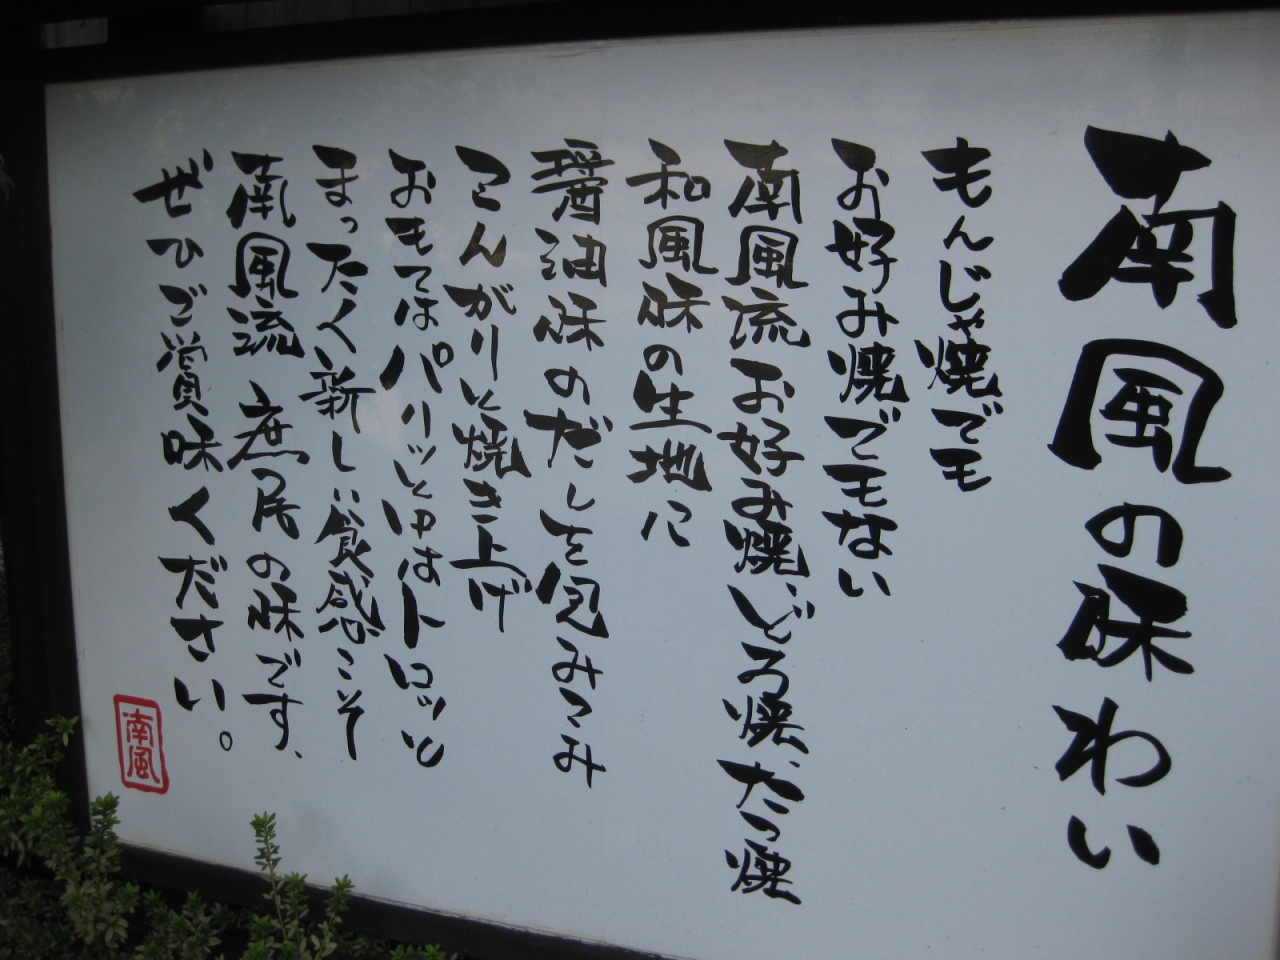 南風の味わい
もんじゃ焼でも
お好み焼でもない
南風流お好み焼、どろ焼、だっ焼
和風味の生地に
醤油味のだしを包みこみ
こんがりと焼き上げ
おもてはパリッとゆはトロッと
まったく新しい食感こそ
南風流 庶民の味です、
ぜひご賞味ください。
南風